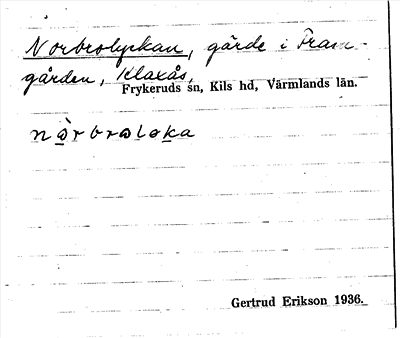 Norbrolyckan, gärde i Fram-
gården, Klaxås,
Frykeruds sn, Kils hd, Värmlands län.
nårbroloka
Gertrud Erikson 1936.